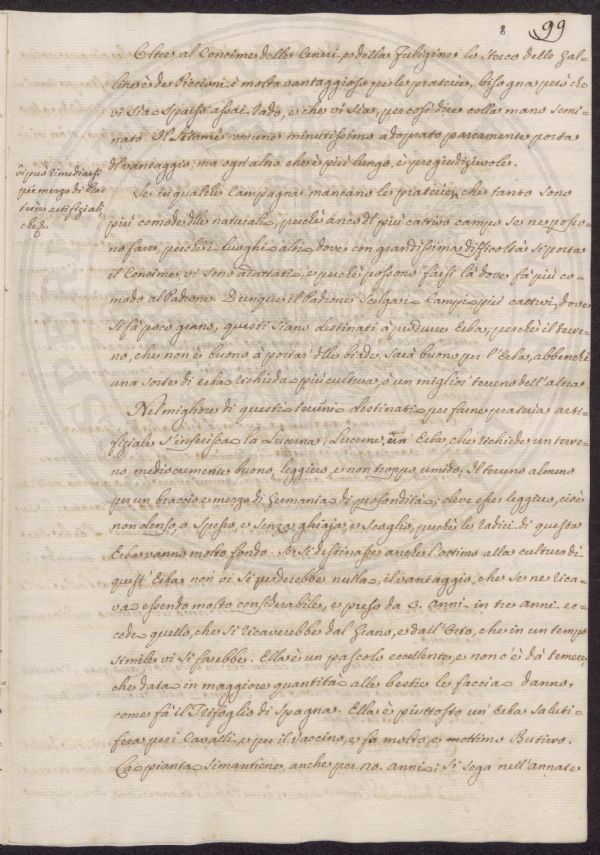 8 99
Oltre al Concime delle Ceneri e della Fuligine lo sterco delle Gal-
line è de Piccioni è molto vantaggioso per le praterie, bisogna però che
vi sia sparso assai rado, e che vi sia, per così dire colla mano semi-
nato. Il letame comune minutissimo adoprato parcamente porta
del vantaggio; ma ogn'altro che è più lungo, è pregiudizievole.
vi può rimediarsi
per mezzo di Pra-
terie artifiziali
che &.
Se in qualche Campagna mancano le praterie, che tanto sono
più comode delle naturali, perchè anco del più cattivo campo se ne posso-
no fare, perchè i luoghi alti, dove con grandissima difficoltà si porta
il Concime, vi sono adattati, e perchè possono farsi là dove fà più co-
modo al Padrone. Dunque il Padrone scelga i Campi più cattivi, dove
si fà poco grano, questi siano destinati à produrre Erba, perchè il terre-
no, che non è buono à portar delle biade, sarà buono per l'Erba, abbenchè
una sorte di erba richieda più cultura, ò un miglior terreno dell'altra
Nel migliore di questi terreni destinati per farne prateria arti-
fiziale s'inferisca la Lucerna, Lucerne, un' Erba, che richiede un terre-
no mediocremente buono, leggiero, e non troppo umido. Il terreno almeno
per un braccio e mezzo di Germania di profondità; deve esser leggiero, cioè
non denso, o spesso, e senza ghiaja, e scoglio, perchè le radici di questa
Erba vanno molto fondo. Se si destinasse anche l'ottimo alla cultura di
quest' Erba non vi si perderebbe nulla, il vantaggio, che se ne rica-
va essendo molto considerabile, e preso da 3. anni in tre anni ec-
cede quello, che si ricaverebbe dal Grano, e dall'Orto, che in un tempo
simile vi si farebbe. Ella è un pascolo eccellente, e non c'è dà temere,
che data in maggiore quantità alle bestie le faccia danno,
come fà il Trifoglio di Spagna. Ella è piuttosto un' Erba saluti-
fera per i Cavalli, e per il Vaccino, e fa molto, e mottimo Butirro.
La pianta si mantiene anche per 20. anni; si sega nell'annate